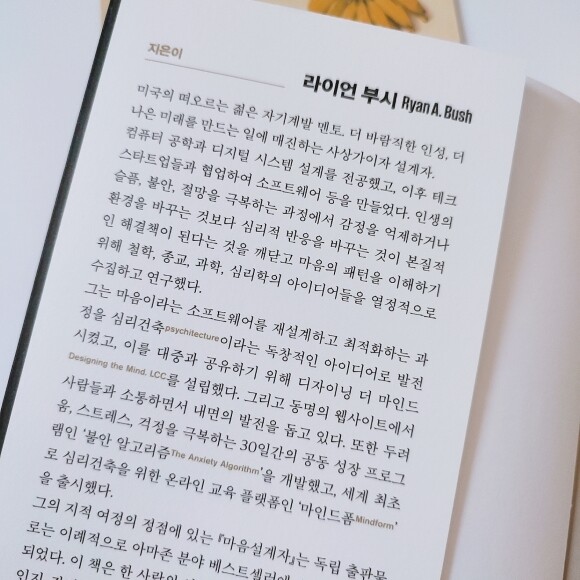 지은이
라이언 부시 Ryan A. Bush
미국의 떠오르는 젊은 자기계발 멘토. 더 바람직한 인성, 더
나은 미래를 만드는 일에 매진하는 사상가이자 설계자.
컴퓨터 공학과 디지털 시스템 설계를 전공했고, 이후 테크
스타트업들과 협업하여 소프트웨어 등을 만들었다. 인생의
슬픔, 불안, 절망을 극복하는 과정에서 감정을 억제하거나
환경을 바꾸는 것보다 심리적 반응을 바꾸는 것이 본질적
인 해결책이 된다는 것을 깨닫고 마음의 패턴을 이해하기
위해 철학, 종교, 과학, 심리학의 아이디어들을 열정적으로
수집하고 연구했다.
그는 마음이라는 소프트웨어를 재설계하고 최적화하는 과
정을 심리건축psychitecture이라는 독창적인 아이디어로 발전
시켰고, 이를 대중과 공유하기 위해 디자이닝 더 마인드
Designing the Mind, LCC를 설립했다. 그리고 동명의 웹사이트에서
사람들과 소통하면서 내면의 발전을 돕고 있다. 또한 두려
움, 스트레스, 걱정을 극복하는 30일간의 공동 성장 프로그
램인 '불안 알고리즘The Anxiety Algorithm'을 개발했고, 세계 최초
로 심리건축을 위한 온라인 교육 플랫폼인 '마인드폼Mindform'
을 출시했다.
그의 지적 여정의 정점에 있는 『마음설계자』는 독립 출판물
로는 이례적으로 아마존 분야 베스트셀러에
되었다. 이 책은 한 사람의